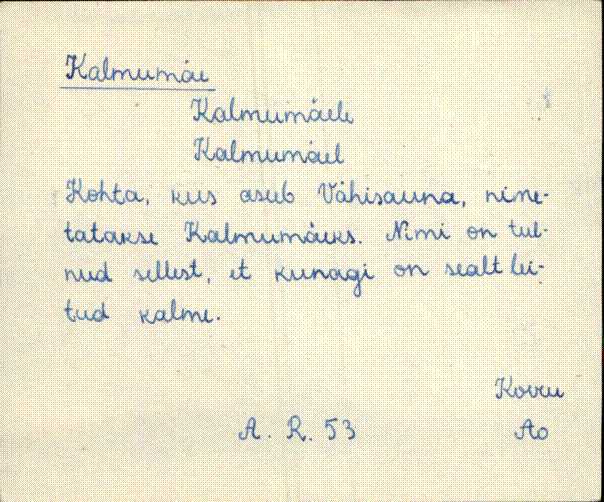 Kalmumäe
Kalmumäele
Kalmumäel
Kohta, kus asub Vähisauna, nime-
tatakse Kalmumäeks. Nimi on tul-
nud sellest, et kunagi on sealt lei-
tud kalme.
Koeru
A. R. 53 Ao